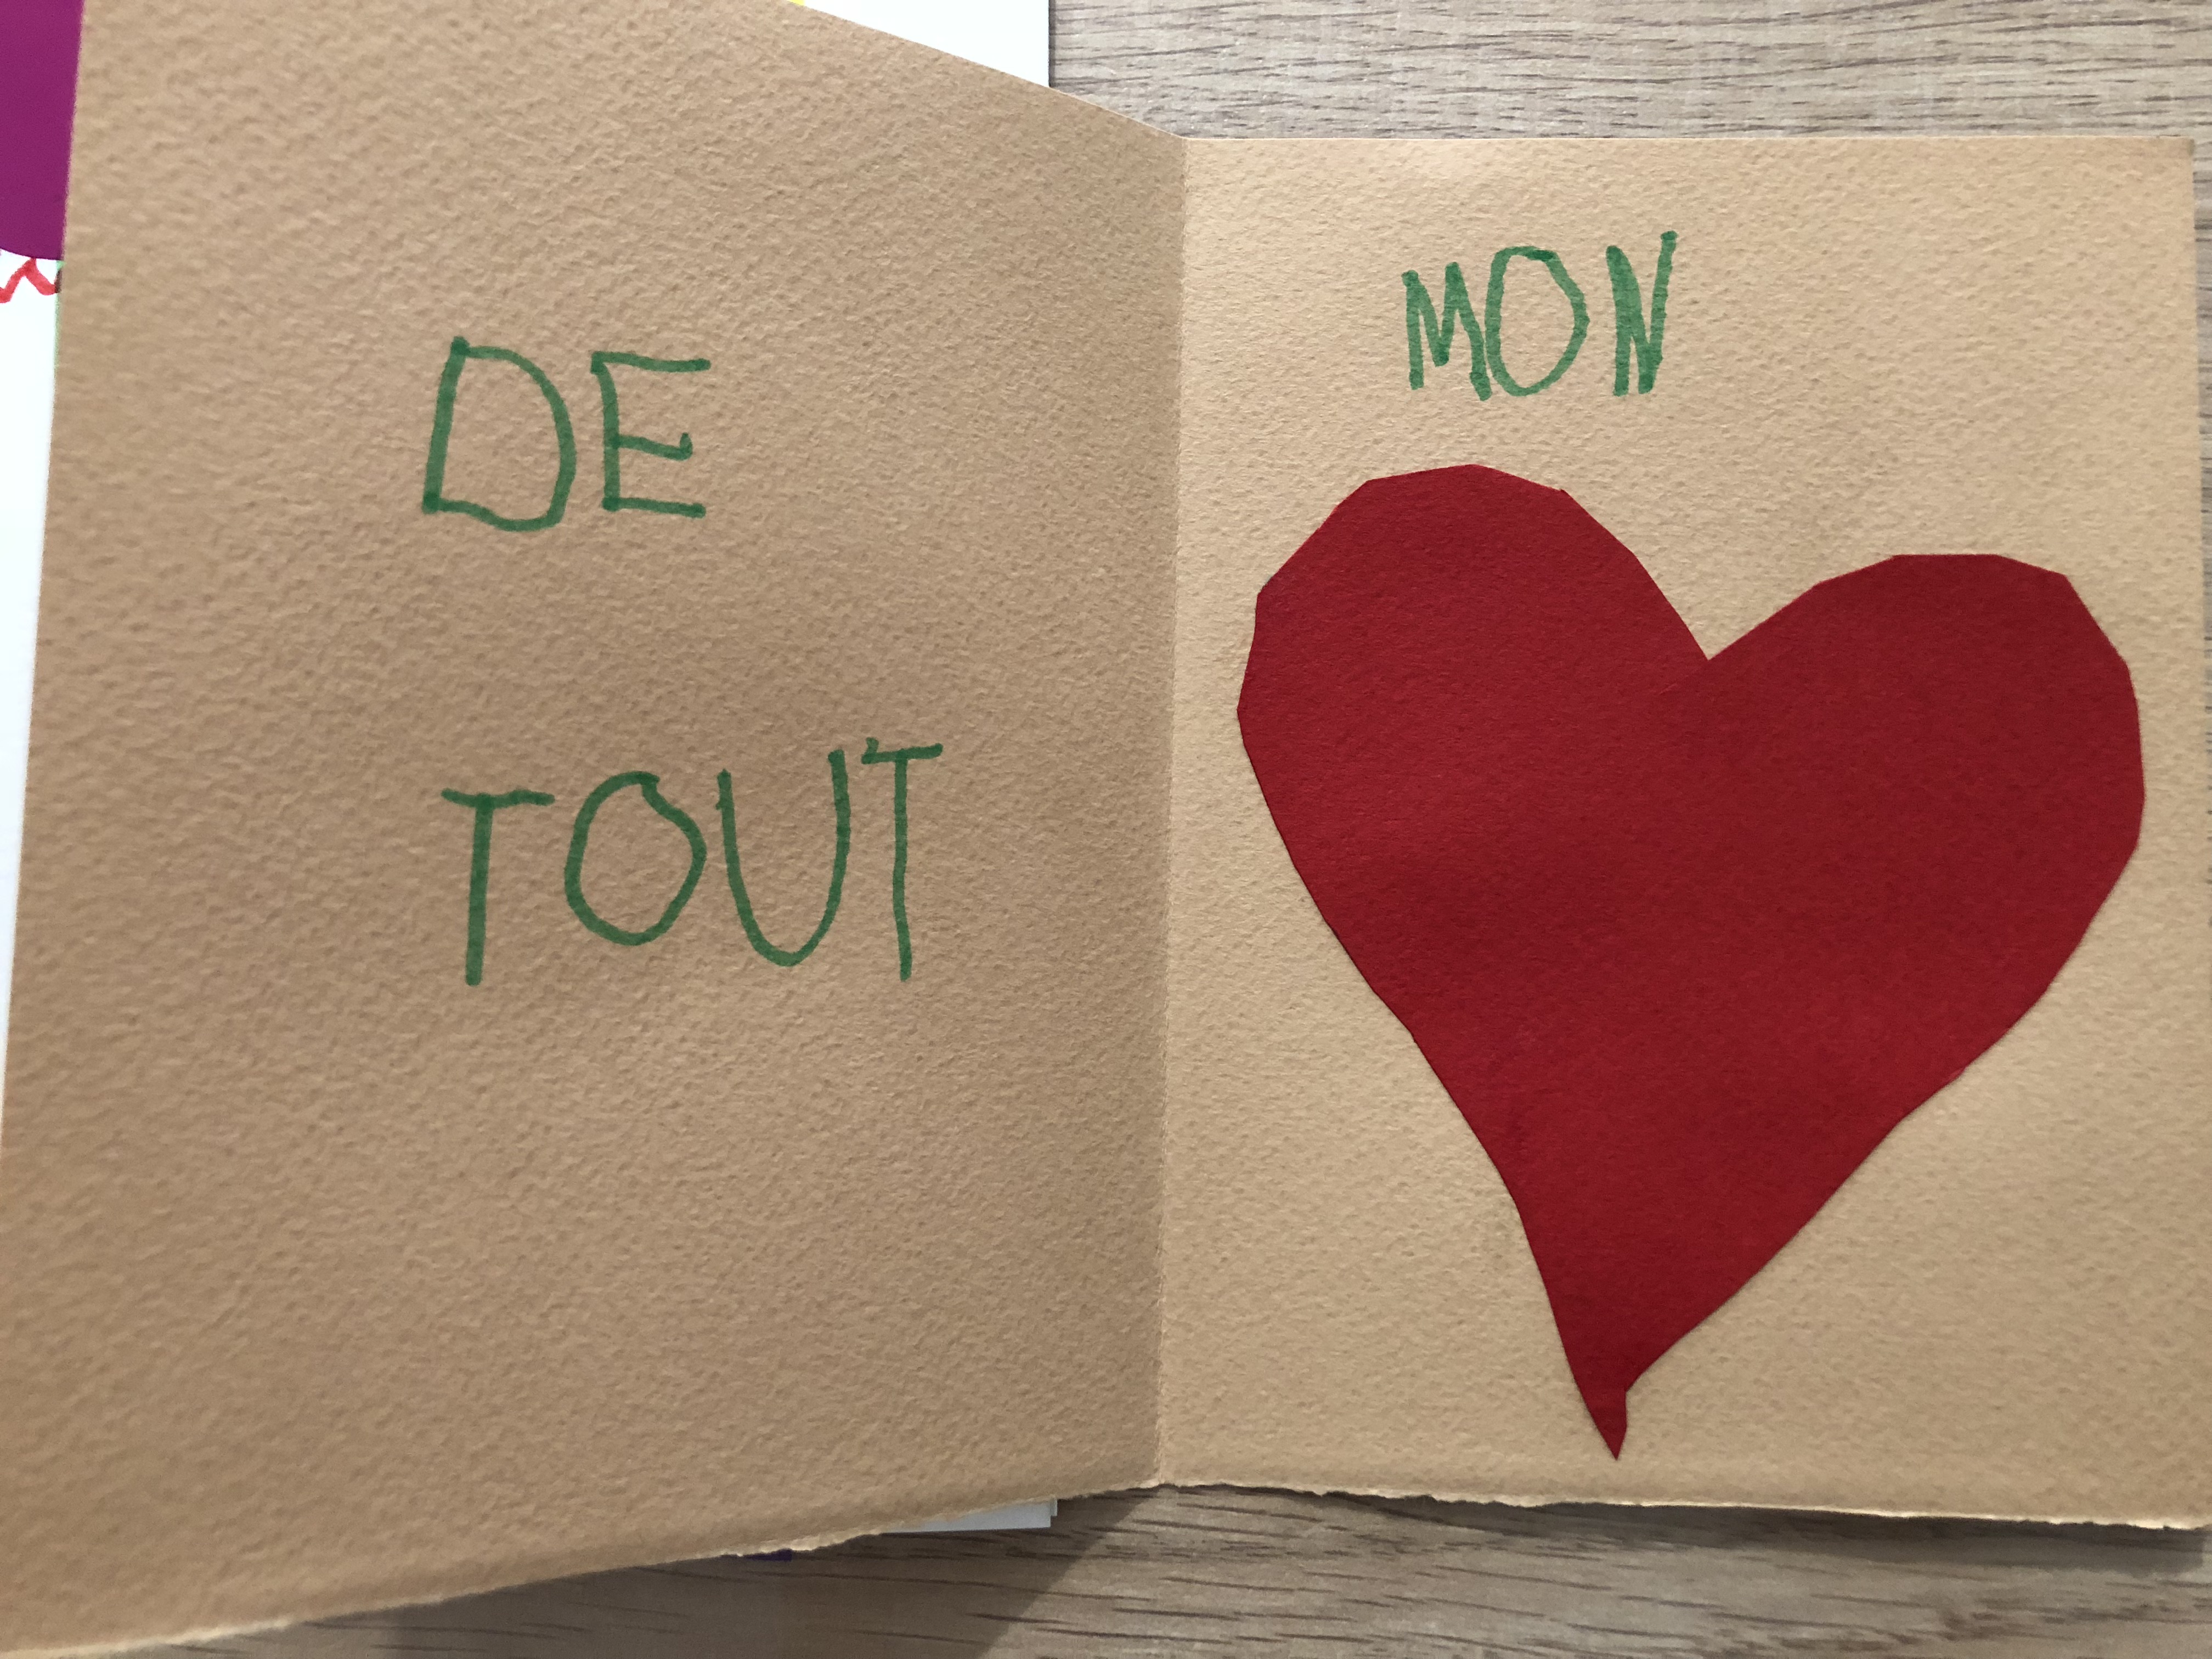 DE
TOUT
MON